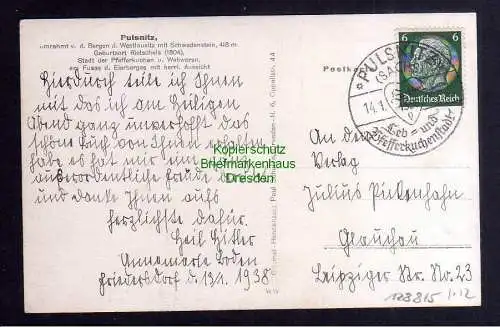 Pulsnitz,
umrahmt v. d. Bergen d. Westlausitz mit Schwedenstein, 418 m
Geburtsort Rietschels (1804),
Stadt der Pfefferkuchen u. Webwaren,
am Fusse d. Eierberges mit herrl. Aussicht
Hierdurch teile ich Ihnen
mit das ich am Heiligen
Abend ganz unverhofft das
schöne Buch von Ihnen erhalten
habe, es hat mir eine
außerordentliche Freude
und danke Ihnen aufs
herzlichste dafür.
Heil Hitler
Annemarie Boden
Friedersdorf d. 13.1. 1938
Postkarte
6 6
Deutsches Reich
PULSNITZ
(SACHS)
14.1.
Leb = und
Pfefferkuchenstadt
An den
Verlag
Julius Pickenhahn
Glauchau
Leipziger Str. Nr. 23
123815
Kopierschutz
Briefmarkenhaus
Dresden